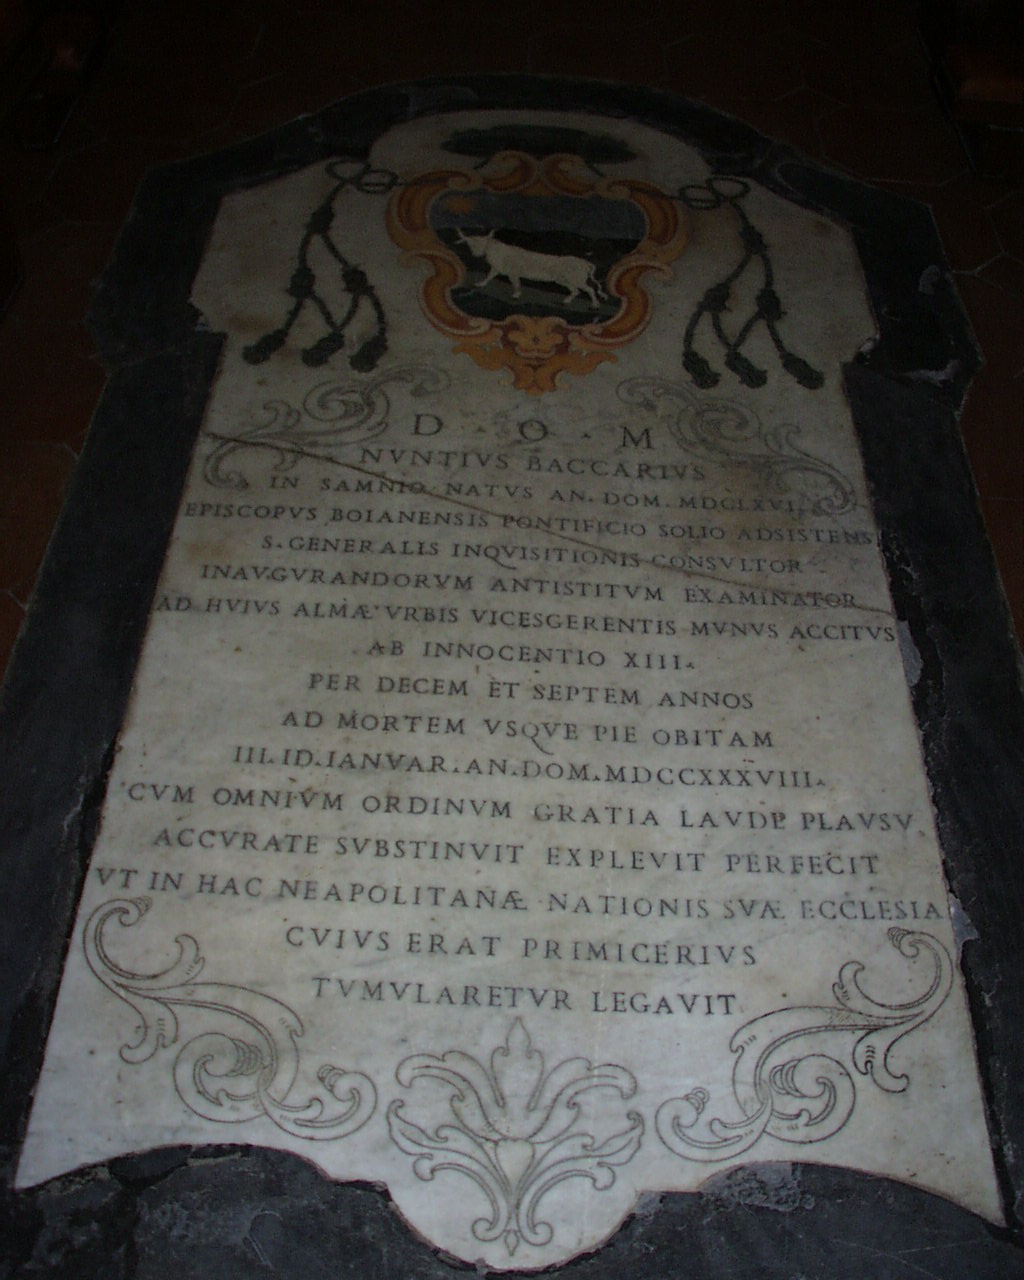 D · O · M
NVNTIVS BACCARIVS
IN SAMNIO NATVS AN.DOM. MDCLXVII.
EPISCOPVS BOIANENSIS PONTIFICIO SOLIO ADSISTENS
S.GENERALIS INQVISITIONIS CONSVLTOR
INAVGVRANDORVM ANTISTITVM EXAMINATOR
AD HVIVS ALMÆ VRBIS VICESGERENTIS MVNVS ACCITVS
AB INNOCENTIO XIII.
PER DECEM ET SEPTEM ANNOS
AD MORTEM VSQVE PIE OBITAM
III.ID.IANVAR.AN.DOM.MDCCXXXVIII.
CVM OMNIVM ORDINVM GRATIA LAVDE PLAVSV
ACCVRATE SVBSTINVIT EXPLEVIT PERFECIT
VT IN HAC NEAPOLITANÆ NATIONIS SVÆ ECCLESIA
CVIVS ERAT PRIMICERIVS
TVMVLARETVR LEGAVIT